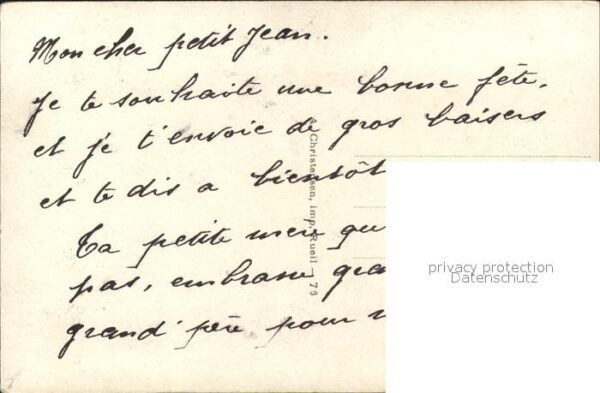 Mon cher petit Jean.
Je te souhaite une bonne fête,
et je t'envoie de gros baisers
et te dis a bientôt
Ta petite mère qu
pas, embrasse gra
grand' père pour
Christensen, imp. Rueil - 73
privacy protection
Datenschutz